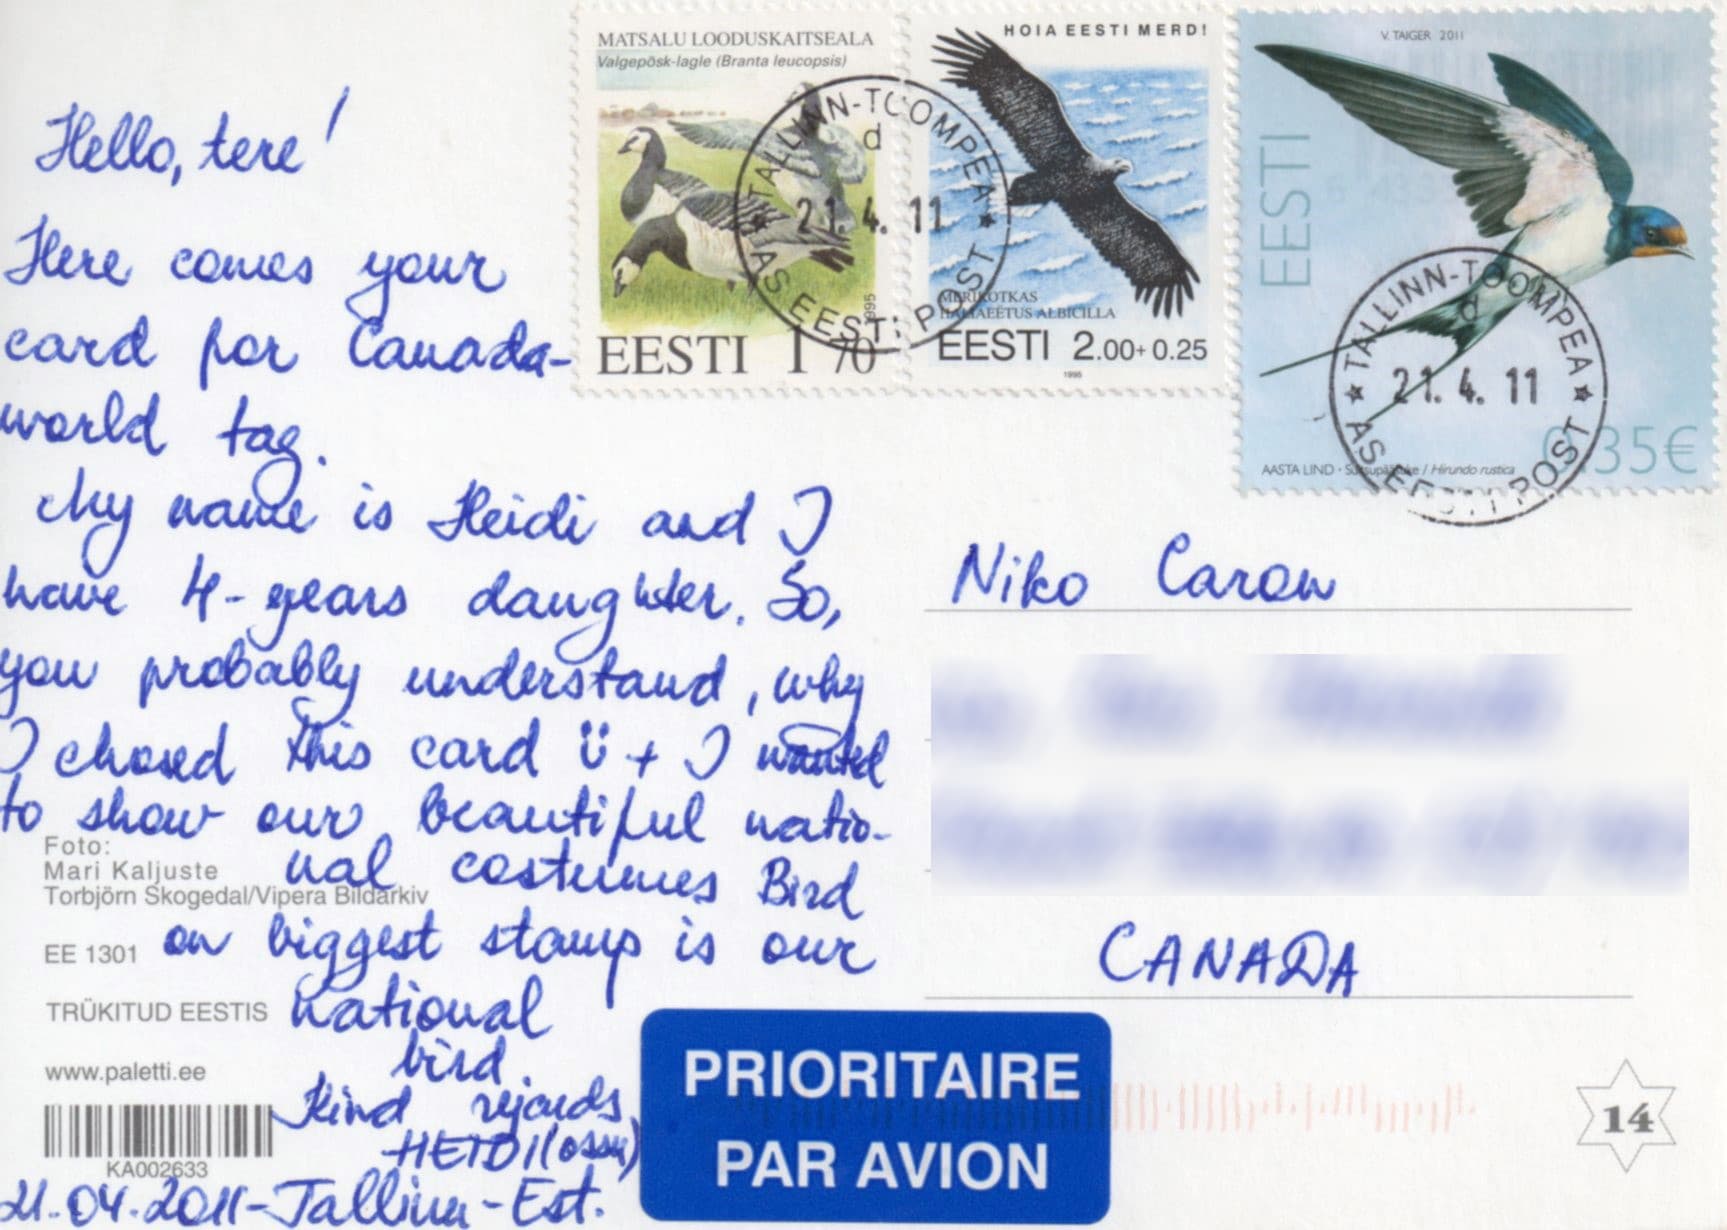 MATSALU LOODUSKAITSEALA
Valgepõsk-lagle (Branta leucopsis)
1995
EESTI 1.70
HOIA EESTI MERD!
MERIKOTKAS
HALIAEËTUS ALBICILLA
EESTI 2.00+0.25
1995
V. TAIGER 2011
EESTI
AASTA LIND • Suitsupääsuke / Hirundo rustica
0.35€
TALLINN-TOOMPEA
d
21.4.11
AS EESTI POST
TALLINN-TOOMPEA
d
21.4.11
AS EESTI POST
Hello, tere!
Here comes your
card for Canada-
world tag.
My name is Heidi and I
have 4-years daughter. So,
you probably understand, why
I chosed this card ü + I wanted
to show our beautiful natio-
nal costumes Bird
on biggest stamp is our
national
bird.
Kind regards,
HEIDI (ossu)
21.04.2011-Tallinn-Est.
Foto:
Mari Kaljuste
Torbjörn Skogedal/Vipera Bildarkiv
EE 1301
TRÜKITUD EESTIS
www.paletti.ee
KA002633
Niko Caron
CANADA
PRIORITAIRE
PAR AVION
14